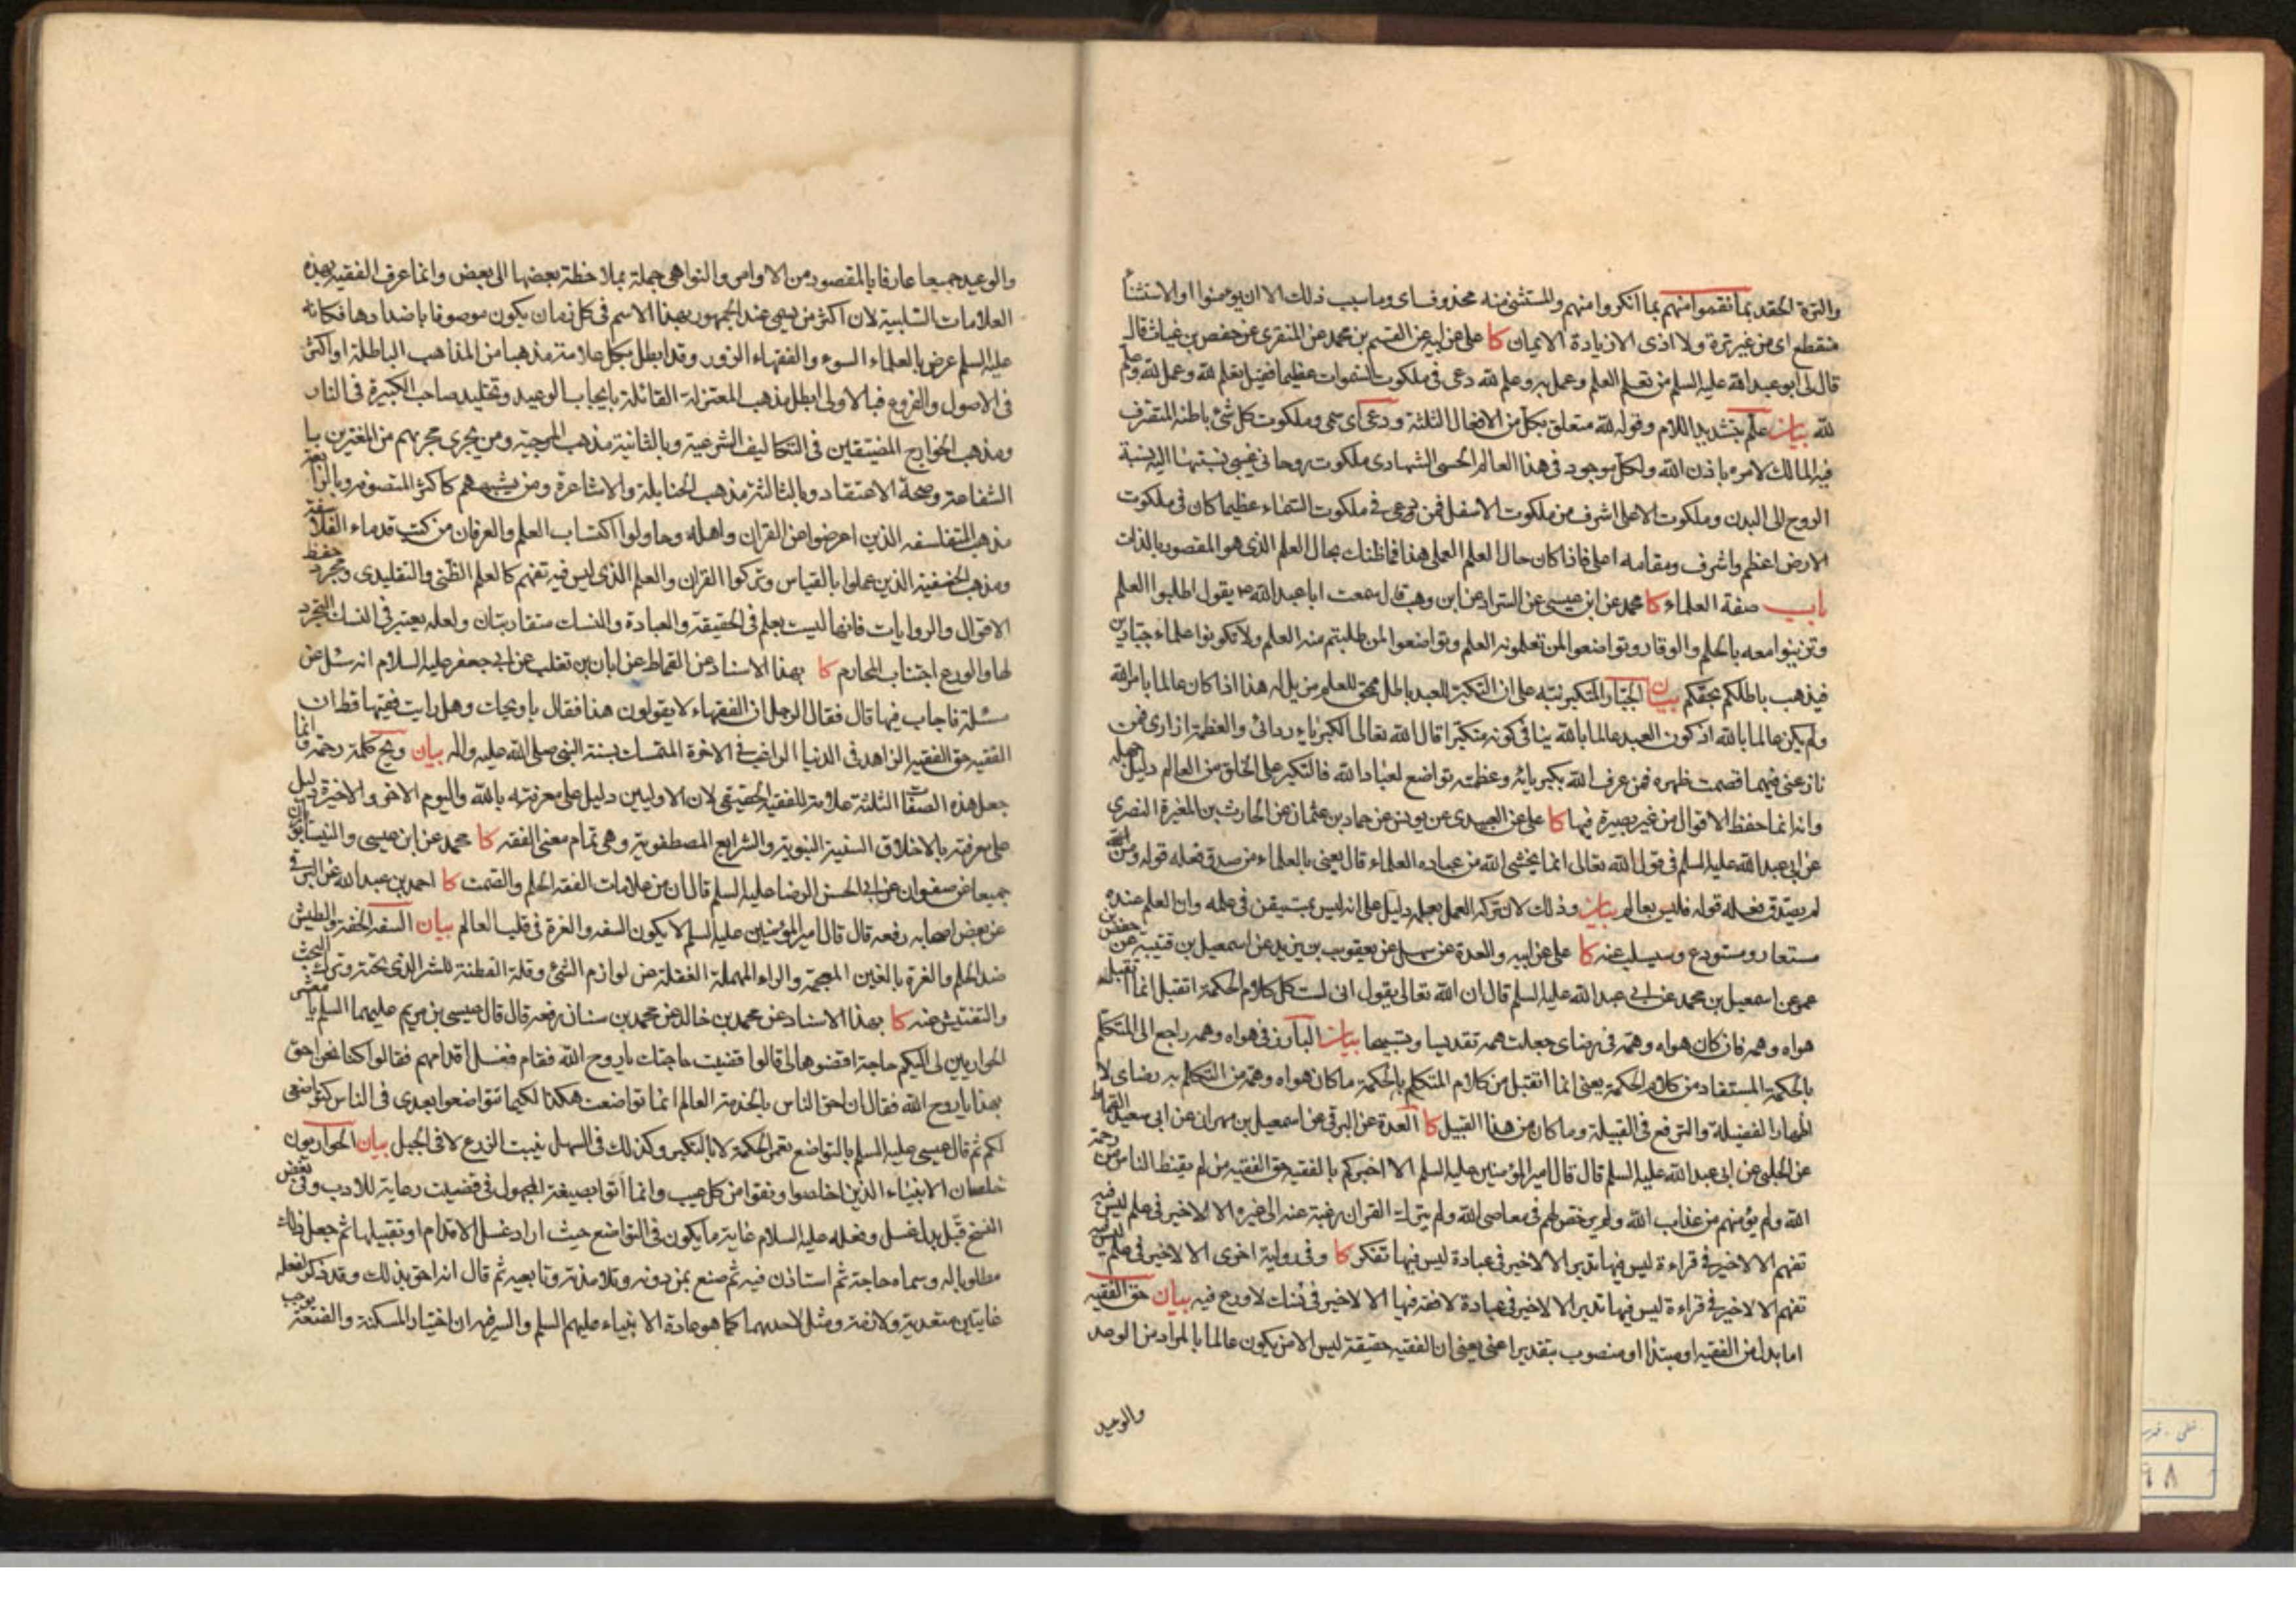 والترة الحقد بما نقموا منهم بما انكروا منهم والمستثنى منه محذوف اى وما سبب ذلك الا ان يؤمنوا او الاستثناء
منقطع اى من غير ترة ولا اذى الا زيادة الايمان كا على عن ابيه عن القسم بن محمد عن المنقرى عن حفص بن غياث قال
قال لى ابو عبد الله عليه السلم من تعلم العلم وعمل به وعلم لله دعى فى ملكوت السموات عظيما فقيل تعلم لله وعمل لله وعلم
لله بيان علم بتشديد اللام وقوله لله متعلق بكل من الافعال الثلثة ودعى اى سمى وملكوت كل شئ باطنه المتصرف
فيه المالك لامره باذن الله ولكل موجود فى هذا العالم الحسى الشهادى ملكوت روحانى غيبى نسبتها اليه نسبة
الروح الى البدن وملكوت الاعلى اشرف من ملكوت الاسفل فمن دعى فى ملكوت السماء عظيما كان فى ملكوت
الارض اعظم واشرف ومقامه اعلى فاذا كان حال العلم العملى هذا فما ظنك بحال العلم الذى هو المقصود بالذات
باب صفة العلماء كا محمد عن ابن عيسى عن السراد عن ابن وهب قال سمعت ابا عبد الله ع يقول اطلبوا العلم
وتزينوا معه بالحلم والوقار وتواضعوا لمن تعلمونه العلم وتواضعوا لمن طلبتم منه العلم ولا تكونوا علماء جبارين
فيذهب باطلكم بحقكم بيان الجبار المتكبر نبّه على ان التكبر للعبد باطل ممحق للعلم مزيل له هذا اذا كان عالما بامر الله
ولم يكن عالما بالله اذ كون العبد عالما بالله ينافى كونه متكبرا قال الله تعالى الكبرياء ردائى والعظمة ازارى فمن
نازعنى فيهما قصمت ظهره فمن عرف الله بكبريائه وعظمته تواضع لعباد الله فالتكبر على الخلق من العالم دليل جهله
وانه انما حفظ الاقوال من غير بصيرة فيها كا على عن العبيدى عن يونس عن حماد بن عثمان عن الحارث بن المغيرة النصرى
عن ابى عبد الله عليه السلم فى قول الله تعالى انما يخشى الله من عباده العلماء قال يعنى بالعلماء من صدق فعله قوله ومن
لم يصدق فعله قوله فليس بعالم بيان وذلك لان تركه العمل بعلمه دليل على انه ليس بمتيقن فى علمه وان العلم عنده
مستعار ومستودع وسيسلب عنه كا على عن ابيه والعدة عن سهل عن يعقوب بن يزيد عن اسمعيل بن قتيبة عن حفص بن
عمر عن اسمعيل بن محمد عن ابى عبد الله عليه السلم قال ان الله تعالى يقول انى لست كل كلام الحكمة اتقبل انما اتقبل
هواه وهمه فان كان هواه وهمه فى رضاى جعلت همه تقديسا وتسبيحا بيان البارز فى هواه وهمه راجع الى المتكلم
بالحكمة المستفاد من كلام الحكمة يعنى انما اتقبل من كلام المتكلم بالحكمة ما كان هواه وهمه من التكلم به رضاى لا
اظهار الفضيلة والترفع فى القبيلة وما كان من هذا القبيل كا العدة عن البرقى عن اسمعيل بن مهران عن ابى سعيد القماط
عن الحلبى عن ابى عبد الله عليه السلم قال قال امير المؤمنين عليه السلم الا اخبركم بالفقيه حق الفقيه من لم يقنط الناس من رحمة
الله ولم يؤمنهم من عذاب الله ولم يرخص لهم فى معاصى الله ولم يترك القران رغبة عنه الى غيره الا لا خير فى علم ليس فيه
تفهم الا لا خير فى قراءة ليس فيها تدبر الا لا خير فى عبادة ليس فيها تفكر كا وفى رواية اخرى الا لا خير فى علم ليس فيه
تفهم الا لا خير فى قراءة ليس فيها تدبر الا لا خير فى عبادة لا فقه فيها الا لا خير فى نسك لا ورع فيه بيان حق الفقيه
اما بدل من الفقيه او مبتدا او منصوب بتقدير اعنى يعنى ان الفقيه حقيقة ليس الا من يكون عالما بالمراد من الوعد
والوعيد
والوعيد جميعا عارفا بالمقصود من الاوامر والنواهى جملة بملاحظة بعضها الى بعض وانما عرف الفقيه بهذه
العلامات السلبية لان اكثر من يسمى عند الجمهور بهذا الاسم فى كل زمان يكون موصوفا باضدادها فكانه
عليه السلم عرض بالعلماء السوء والفقهاء الزور وقد ابطل بكل علامة مذهبا من المذاهب الباطلة او اكثر
فى الاصول والفروع فبالاولى ابطل مذهب المعتزلة القائلة بايجاب الوعيد وتخليد صاحب الكبيرة فى النار
ومذهب الخوارج المضيقين فى التكاليف الشرعية وبالثانية مذهب المرجية ومن يجرى مجريهم من المغترين با
الشفاعة وصحة الاعتقاد وبالثالثة مذهب الحنابلة والاشاعرة ومن يشبههم كاكثر المتصوفة وبالرابعة
مذهب المتفلسفة الذين اعرضوا عن القران واهله وحاولوا اكتساب العلم والعرفان من كتب قدماء الفلاسفة
ومذهب الحنفية الذين عملوا بالقياس وتركوا القران والعلم الذى ليس فيه تفهم كالعلم الظنى والتقليدى ومجرد حفظ
الاقوال والروايات فانها ليست بعلم فى الحقيقة والعبادة والنسك متقاربتان ولعله يعتبر فى النسك التجرد
لها والورع اجتناب المحارم كا بهذا الاسناد عن القماط عن ابان بن تغلب عن ابى جعفر عليه السلام انه سئل عن
مسئلة فاجاب فيها قال فقال الرجل ان الفقهاء لا يقولون هذا فقال يا ويحك وهل رايت فقيها قط ان
الفقيه حق الفقيه الزاهد فى الدنيا الراغب فى الاخرة المتمسك بسنة النبى صلى الله عليه واله بيان ويح كلمة رحمة وانما
جعل هذه الصفات الثلثة علامة للفقيه الحقيقى لان الاوليين دليل على معرفته بالله واليوم الاخر والاخيرة دليل
على معرفته بالاخلاق السنية النبوية والشرايع المصطفوية وهى تمام معنى الفقه كا محمد عن ابن عيسى والنيسابوريان
جميعا عن صفوان عن ابى الحسن الرضا عليه السلم قال ان من علامات الفقه الحلم والصمت كا احمد بن عبد الله عن البرقى
عن بعض اصحابه رفعه قال قال امير المؤمنين عليه السلم لا يكون السفه والغرة فى قلب العالم بيان السفه الخفة والطيش
ضد الحلم والغرة بالغين المعجمة والراء المهملة الغفلة عن لوازم الشئ وقلة الفطنة للشر الذى تحته وترك البحث
والتفتيش عنه كا بهذا الاسناد عن محمد بن خالد عن محمد بن سنان رفعه قال قال عيسى بن مريم عليهما السلم يا معشر
الحواريين لى اليكم حاجة اقضوها لى قالوا قضيت حاجتك يا روح الله فقام فغسل اقدامهم فقالوا كنا نحن احق
بهذا يا روح الله فقال ان احق الناس بالخدمة العالم انما تواضعت هكذا لكيما تتواضعوا بعدى فى الناس كتواضعى
لكم ثم قال عيسى عليه السلم بالتواضع تعمر الحكمة لا بالتكبر وكذلك فى السهل ينبت الزرع لا فى الجبل بيان الحواريون
خلصان الانبياء الذين اخلصوا ونقوا من كل عيب وانما اتوا بصيغة المجهول فى قضيت رعاية للادب وفى بعض
النسخ قبّل بدل غسل وفعله عليه السلام غاية ما يكون فى التواضع حيث اراد غسل الاقدام او تقبيلها ثم جعل ذلك
مطلوبا له وسماه حاجة ثم استاذن فيه ثم صنع بمن دونه وتلامذته وتابعيه ثم قال انه احق بذلك وقد ذكر لفعله
غايتين متعدية ولازمة ومثل لاحديهما كما هو عادة الانبياء عليهم السلم والسر فيه ان اختيار المسكنة والضعة يوجب